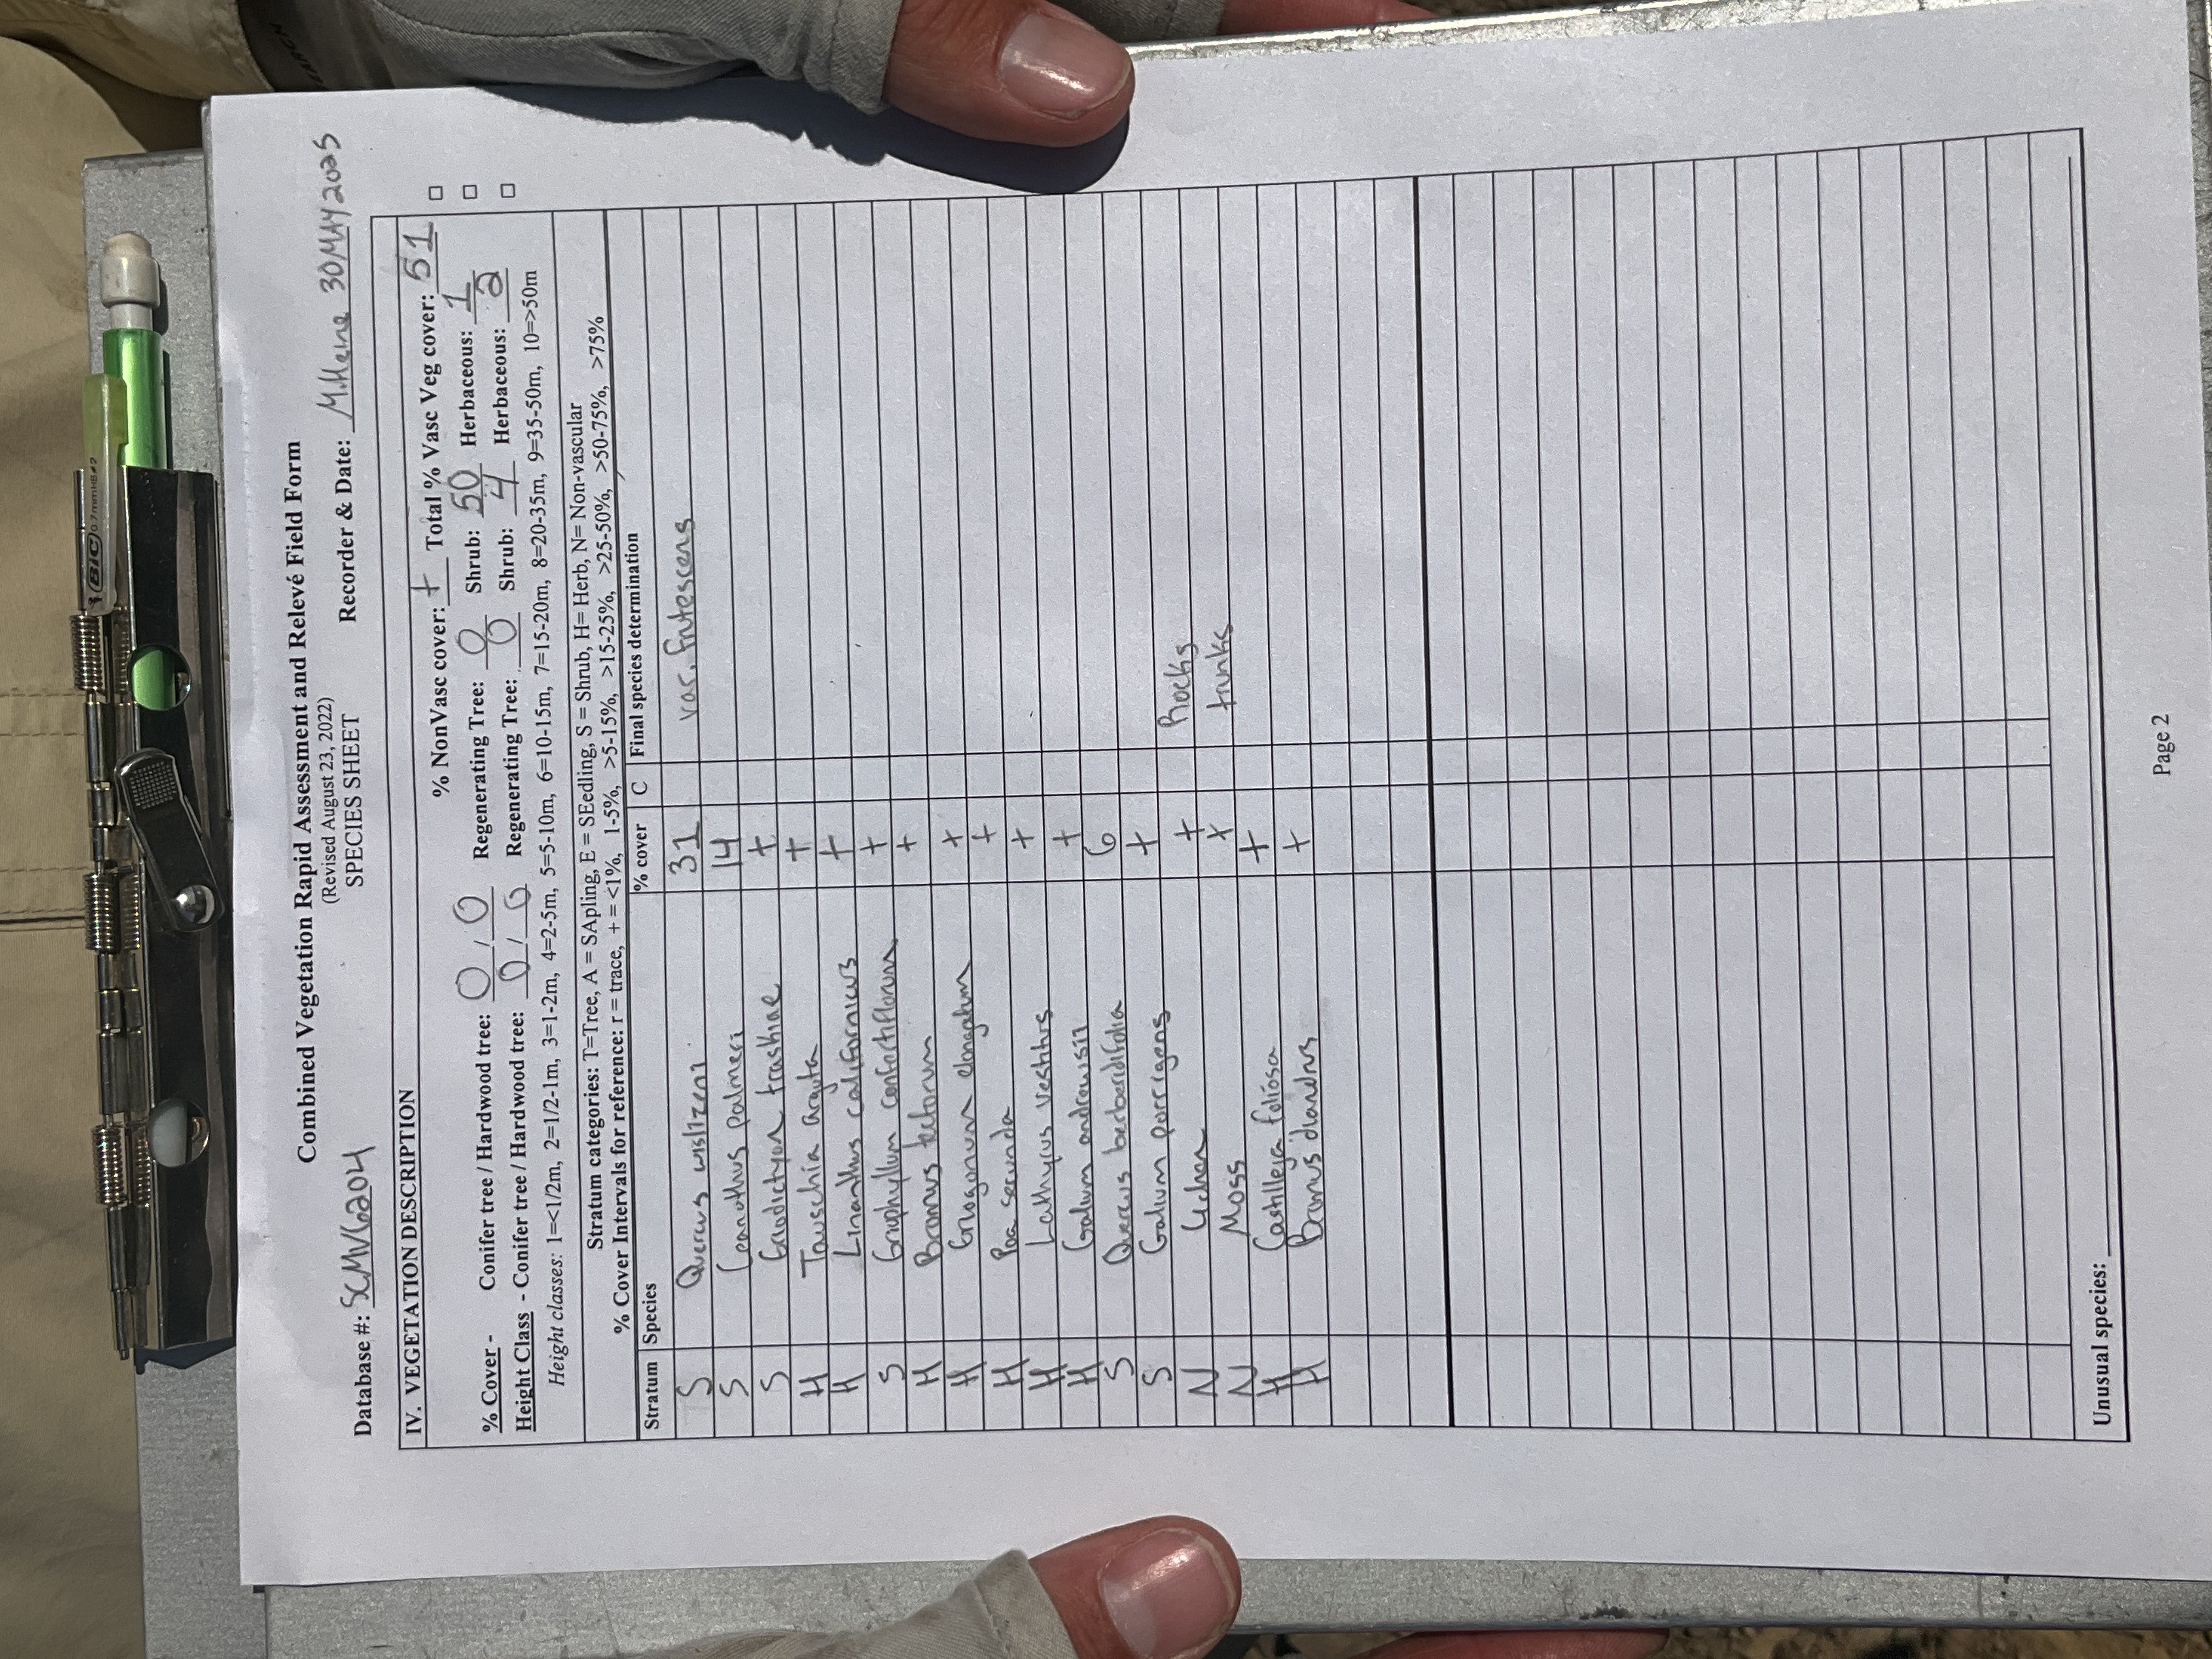 Combined Vegetation Rapid Assessment and Relevé Field Form
(Revised August 23, 2022)
SPECIES SHEET
Database #: SCMV6204 Recorder & Date: M.Heine 30MAY2025
IV. VEGETATION DESCRIPTION
% NonVasc cover: + Total % Vasc Veg cover: 51 □
% Cover - Conifer tree / Hardwood tree: 0 / 0 Regenerating Tree: 0 Shrub: 50 Herbaceous: 1 □
Height Class - Conifer tree / Hardwood tree: 0 / 0 Regenerating Tree: 0 Shrub: 4 Herbaceous: 2 □
Height classes: 1=<1/2m, 2=1/2-1m, 3=1-2m, 4=2-5m, 5=5-10m, 6=10-15m, 7=15-20m, 8=20-35m, 9=35-50m, 10=>50m
Stratum categories: T=Tree, A = SApling, E = SEedling, S = Shrub, H= Herb, N= Non-vascular
% Cover Intervals for reference: r = trace, + = <1%, 1-5%, >5-15%, >15-25%, >25-50%, >50-75%, >75%
Stratum Species % cover C Final species determination
S Quercus wislizeni 31 var. frutescens
S Ceanothus palmeri 14
S Eriodictyon traskiae +
H Tauschia arguta +
H Linanthus californicus +
S Eriophyllum confertiflorum +
H Bromus tectorum +
H Eriogonum elongatum +
H Poa secunda +
H Lathyrus vestitus +
H Galium andrewsii +
S Quercus berberidifolia 6
S Galium porrigens +
N Lichen + Rocks
N Moss + trunks
H Castilleja foliosa +
H Bromus diandrus +
Unusual species:
Page 2
BIC 0.7mm HB #2